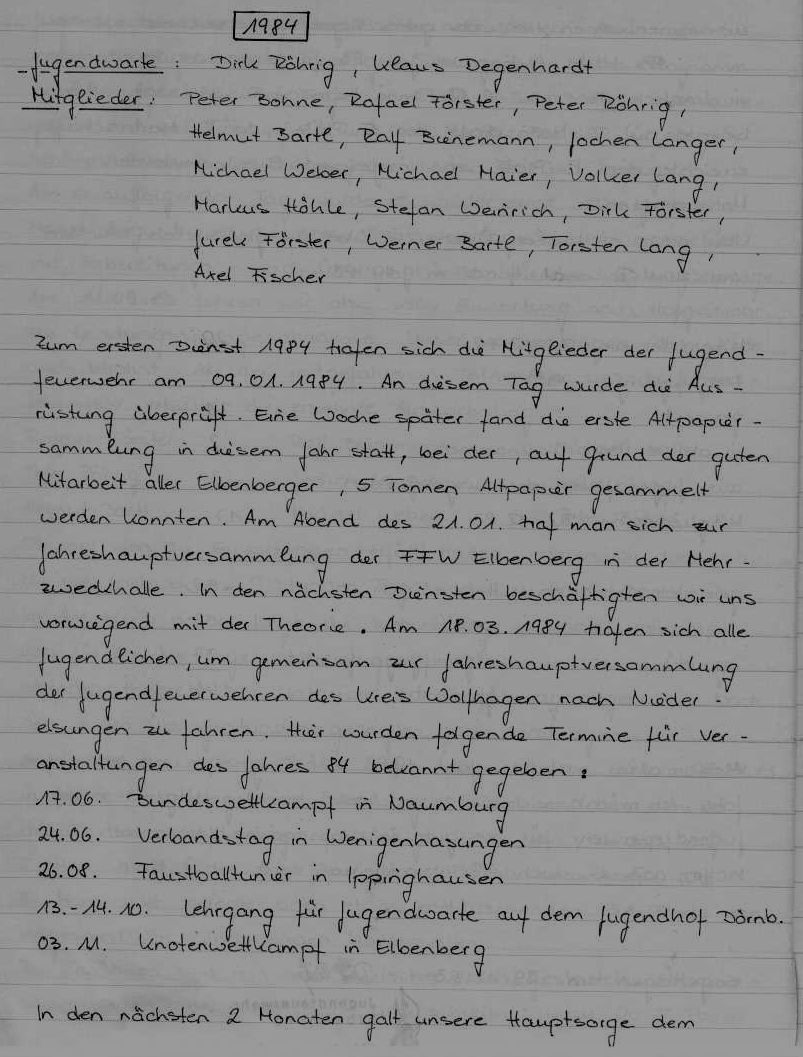 1984
Jugendwarte : Dirk Röhrig, Klaus Degenhardt
Mitglieder : Peter Bohne, Rafael Förster, Peter Röhrig,
Helmut Bartl, Ralf Bünemann, Jochen Langer,
Michael Weber, Michael Maier, Volker Lang,
Markus Höhle, Stefan Weinrich, Dirk Förster,
Jurek Förster, Werner Bartl, Torsten Lang,
Axel Fischer
Zum ersten Dienst 1984 trafen sich die Mitglieder der Jugend-
feuerwehr am 09.01.1984. An diesem Tag wurde die Aus-
rüstung überprüft. Eine Woche später fand die erste Altpapier-
sammlung in diesem Jahr statt, bei der, auf Grund der guten
Mitarbeit aller Elbenberger, 5 Tonnen Altpapier gesammelt
werden konnten. Am Abend des 21.01. traf man sich zur
Jahreshauptversammlung der FFW Elbenberg in der Mehr-
zweckhalle. In den nächsten Diensten beschäftigten wir uns
vorwiegend mit der Theorie. Am 18.03.1984 trafen sich alle
Jugendlichen, um gemeinsam zur Jahreshauptversammlung
der Jugendfeuerwehren des Kreis Wolfhagen nach Nieder-
elsungen zu fahren. Hier wurden folgende Termine für Ver-
anstaltungen des Jahres 84 bekannt gegeben:
17.06. Bundeswettkampf in Naumburg
24.06. Verbandstag in Wenigenhasungen
26.08. Faustballturnier in Ippinghausen
13.-14.10. Lehrgang für Jugendwarte auf dem Jugendhof Dörnb.
03.11. Knotenwettkampf in Elbenberg
In den nächsten 2 Monaten galt unsere Hauptsorge dem